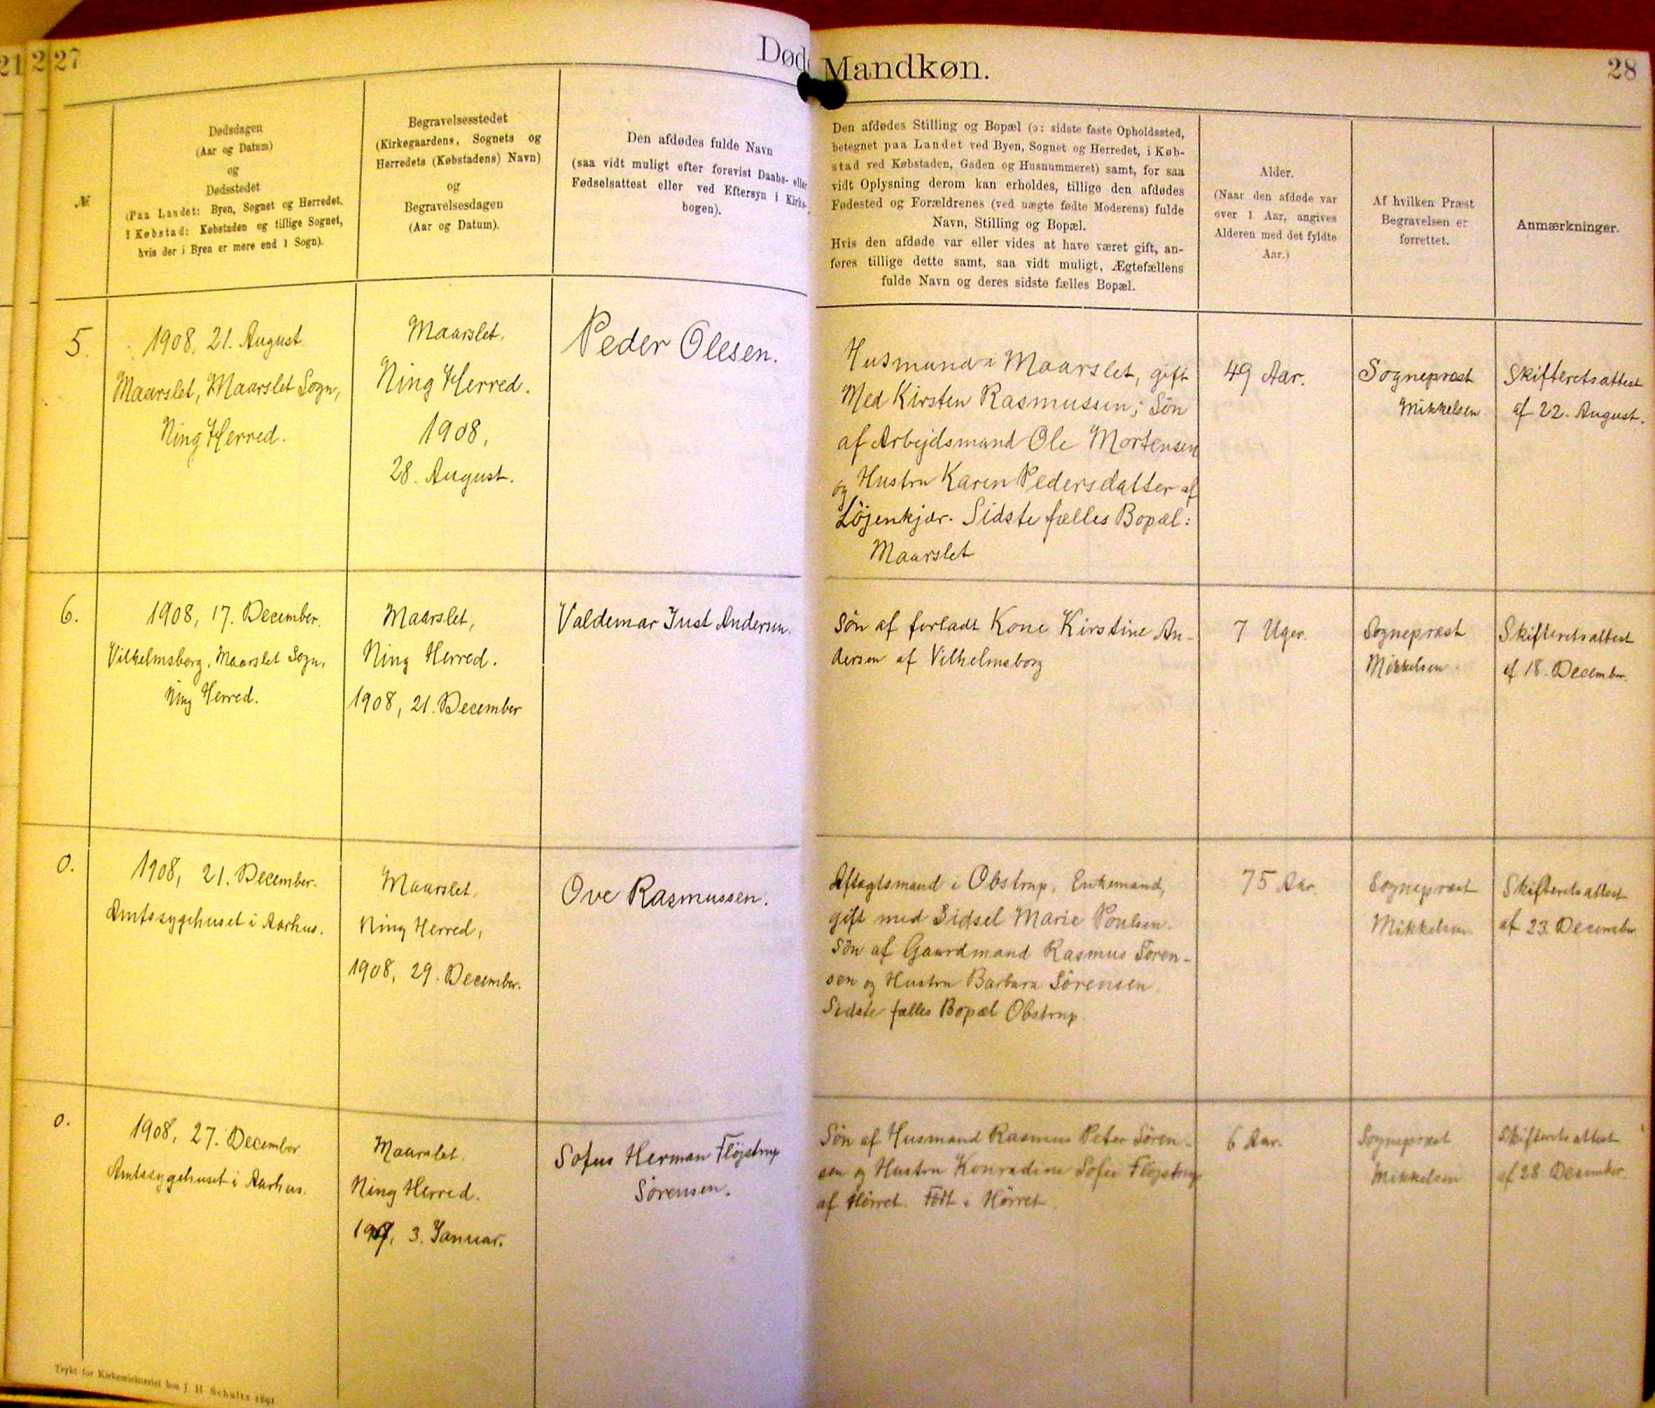 21
2
27
Døde
Mandkøn.
28
№
Dødsdagen
(Aar og Datum)
og
Dødsstedet
(Paa Landet: Byen, Sognet og Herredet.
I Købstad: Købstaden og tillige Sognet,
hvis der i Byen er mere end 1 Sogn).
Begravelsesstedet
(Kirkegaardens, Sognets og
Herredets (Købstadens) Navn)
og
Begravelsesdagen
(Aar og Datum).
Den afdødes fulde Navn
(saa vidt muligt efter forevist Daabs- eller
Fødselsattest eller ved Eftersyn i Kirke-
bogen).
Den afdødes Stilling og Bopæl (ɔ: sidste faste Opholdssted,
betegnet paa Landet ved Byen, Sognet og Herredet, i Køb-
stad ved Købstaden, Gaden og Husnummeret) samt, for saa
vidt Oplysning derom kan erholdes, tillige den afdødes
Fødested og Forældrenes (ved uægte fødte Moderens) fulde
Navn, Stilling og Bopæl.
Hvis den afdøde var eller vides at have været gift, an-
føres tillige dette samt, saa vidt muligt, Ægtefællens
fulde Navn og deres sidste fælles Bopæl.
Alder.
(Naar den afdøde var
over 1 Aar, angives
Alderen med det fyldte
Aar.)
Af hvilken Præst
Begravelsen er
forrettet.
Anmærkninger.
5.
1908, 21. August
Maarslet, Maarslet Sogn,
Ning Herred.
Maarslet,
Ning Herred.
1908,
28. August.
Peder Olesen.
Husmand i Maarslet, gift
Med Kirsten Rasmussen; Søn
af Arbejdsmand Ole Mortensen
og Hustru Karen Pedersdatter af
Løjenkjær. Sidste fælles Bopæl:
Maarslet
49 Aar.
Sognepræst
Mikkelsen
Skifteretsattest
af 22. August.
6.
1908, 17. December.
Vilhelmsborg, Maarslet Sogn,
Ning Herred.
Maarslet,
Ning Herred.
1908, 21. December
Valdemar Just Andersen.
Søn af forladt Kone Kirstine An-
dersen af Vilhelmsborg
7 Uger.
Sognepræst
Mikkelsen
Skifteretsattest
af 18. December.
0.
1908, 21. December.
Amtssygehuset i Aarhus.
Maarslet.
Ning Herred,
1908, 29. December.
Ove Rasmussen.
Aftægtsmand i Obstrup, Enkemand,
gift med Sidsel Marie Poulsen.
Søn af Gaardmand Rasmus Søren-
sen og Hustru Barbara Sørensen.
Sidste fælles Bopæl Obstrup.
75 Aar.
Sognepræst
Mikkelsen.
Skifteretsattest
af 23. December
0.
1908, 27. December
Amtssygehuset i Aarhus.
Maarslet.
Ning Herred.
1909, 3. Januar.
Sofus Herman Fløjstrup
Sørensen.
Søn af Husmand Rasmus Peter Søren-
sen og Hustru Konradine Sofie Fløjstrup
af Hørret. Født i Hørret.
6 Aar.
Sognepræst
Mikkelsen
Skifteretsattest
af 28. December.
Trykt for Kirkeministeriet hos J. H. Schultz 1891